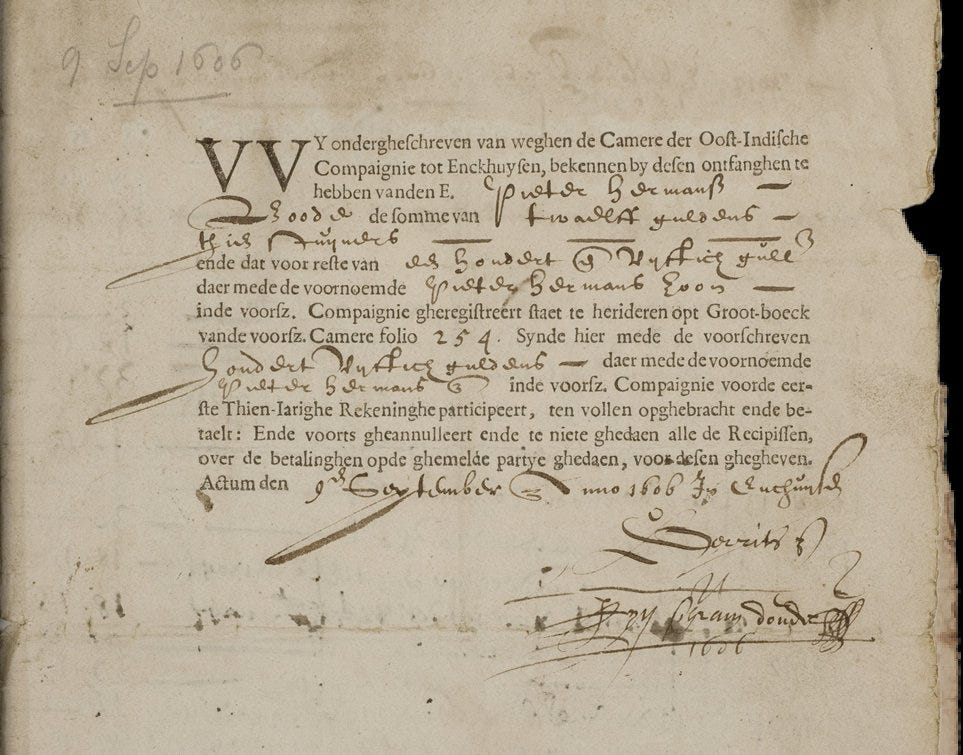 9 Sep 1606
VVY ondergheſchreven van weghen de Camere der Ooſt-Indiſche
Compaignie tot Enckhuyſen, bekennen by deſen ontfanghen te
hebben vanden E. Pieter hermansz —
Zoode de ſomme van twaelff guldens —
thien stuyvers —
ende dat voor reſte van een hondert vyftich gull
daer mede de voornoemde Pieter hermans zoon —
inde voorſz. Compaignie gheregiſtreert ſtaet te herideren opt Groot-boeck
vande voorſz. Camere folio 254. Synde hier mede de voorſchreven
hondert vyftich guldens — daer mede de voornoemde
Pieter hermans inde voorſz. Compaignie voorde eer-
ſte Thien-Iarighe Rekeninghe participeert, ten vollen opghebracht ende be-
taelt: Ende voorts gheannulleert ende te niete ghedaen alle de Recipiſſen,
over de betalinghen opde ghemelde partye ghedaen, voor deſen ghegheven.
Actum den 9en September Anno 1606 In Enchuysen
Gerritsz
1606